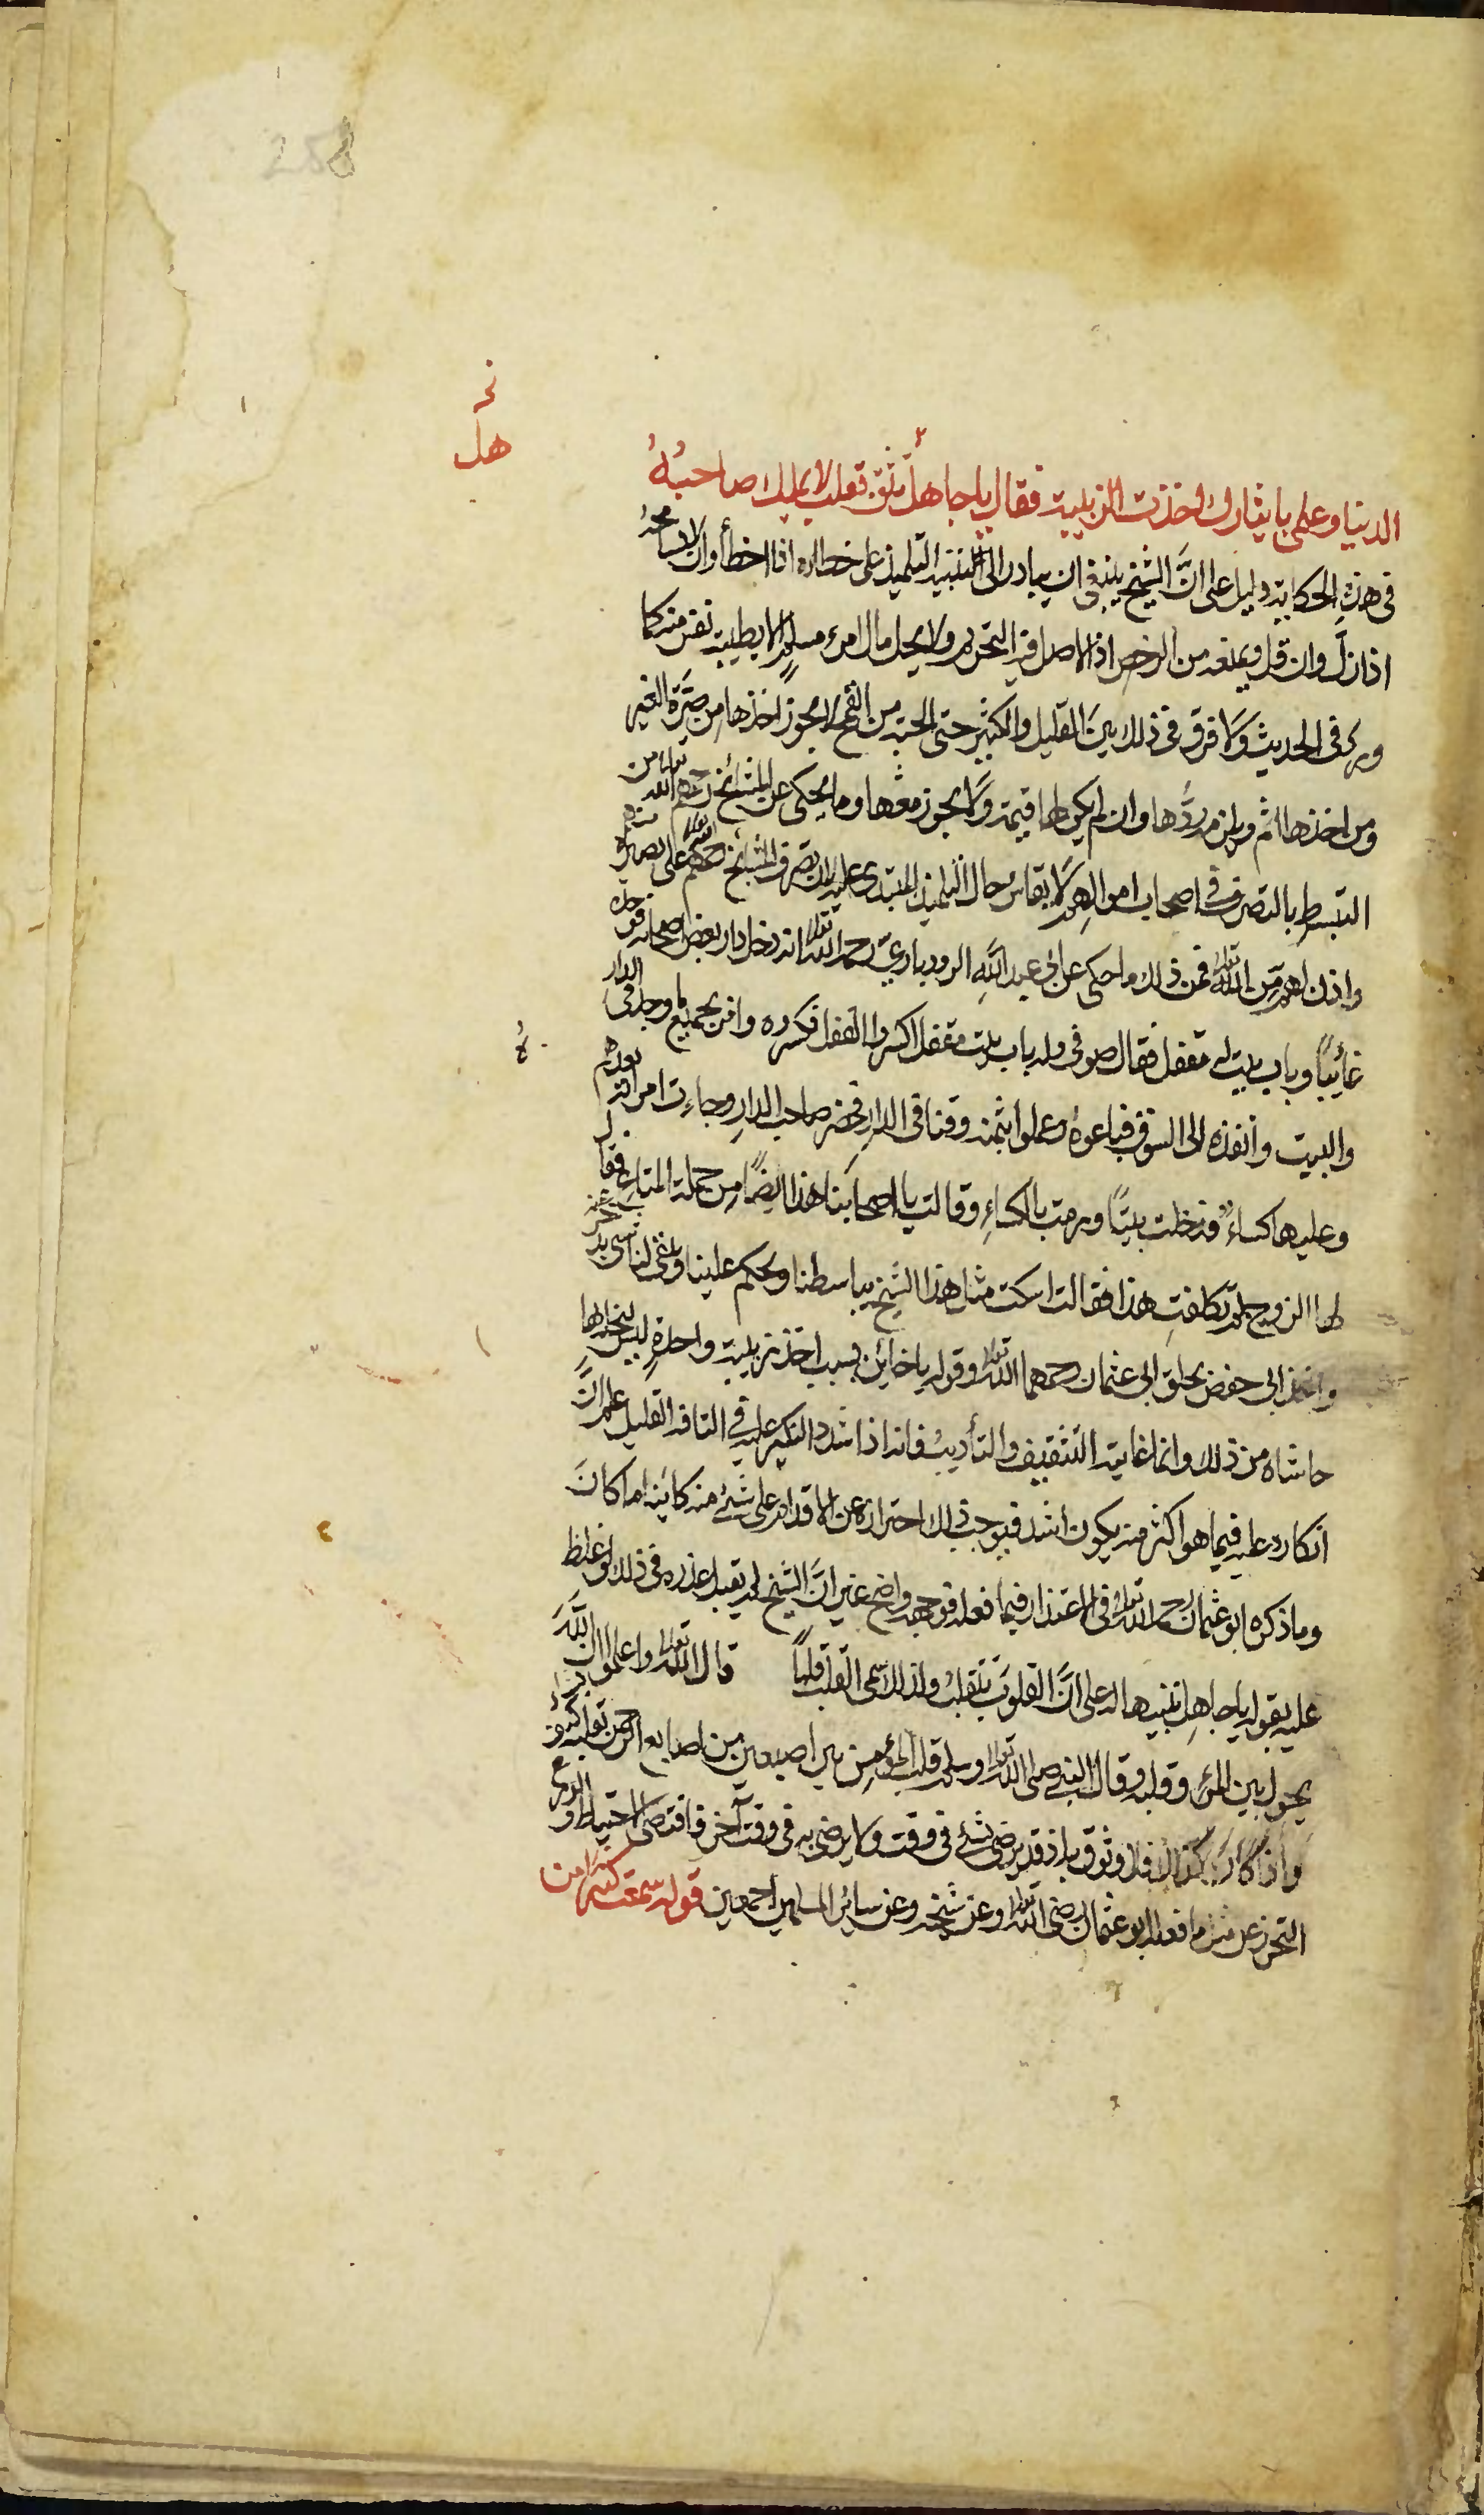 288
نخ
هل
الدنيا وعلمي بايثارك اخذت الزبيبة فقال يا جاهل تثق بقلب لا يملك صاحبه
في هذه الحكاية دليل على انَّ الشيخ ينبغي ان يبادر الى التنبيه التلميذ على خطائه اذا اخطأ وان لا يسامحهُ
اذا زلَّ وان قل ويمنعه من الرخص اذ الاصل فيه التحريم ولا يحل مال امرء مسلم الا بطيبة نفس منه كما
ورد في الحديث وَلا فرق في ذلك بينَ القليل والكثير حتى الحبة من القمح لا يجوز اخذها من صُبَرة الغير
ومن اخذها اثم ويلزمه ردُّها وان لم يكن لها قيمة وَلا يجوز معها وما يحكى عن المشائخ رحمهم الله تعالى من
التبسط بالتصرف في اصحاب اموالهم لا يقاس حال التلميذ المبتدي عليه لان تصرف المشائخ رحمهم الله على بصيرة منهم
واذن لهم مِّن الله تعالى فمن ذلك ما حكى عن ابي عبد اللهِ الروذباري رحمه الله تعالى انه دخل دار بعض اصحابه فوجده
غائبًا وباب بيت له مقفل فقال صوفي وله باب بيت مقفل اكسروا القفل فكسروه وامر بجميع ما وجد في الدار
والبيت وانفذه الى السوق فباعوهُ وعملوا بثمنه وقتا في الدارِ فحضر صاحب الدارِ وجاءت امراته بعدهم
وعليها كساءٌ فدخلت بيتًا ورمت بالكساءِ وقالت يا اصحابَنا هذا ايضًا من جملة المتاع فقال
لها الزوج لم تكلفتِ هذا فقالت اسكت مثل هذا الشيخ يباسطنا ويحكم علينا ويبقى لنا شئ ندخره عنه
واخذ ابي حفص بحلق ابي عثمان رحمهما الله تعالى وقوله يا خائن بسبب اخذ زبيبة واحدةٍ ليس لبخله بها
حاشاه من ذلك وانما غايته التثقيف والتأديبُ فانه اذا شدد النكير عليه في التافه القليل علم انَّ
انكاره عليه فيما هو اكثر منه يكون اشد فيوجب ذلك احترازه عن الاقدام على شئ منه كائنا ما كانَ
وما ذكره ابو عثمان رحمه الله تعالى في الاعتذار فيما فعله فوجهه واضح غير انَّ الشيخ لم يقبل عذره في ذلك ولو غلظ
عليه بقوله يا جاهل تنبيها له على انَّ القلوبَ تتقلبُ ولذلك سمي القلب قلبًا قال الله تعالى واعلموا ان اللهَ
يحول بين المرء وقلبه وقال النبي صلى الله تعالى وسلم قلب المؤمن بين اصبعين من اصابع الرحمن يقلبه كيف يشاء
واذا كان كذلك فلا وثوق به اذ قد يرضى بشئ في وقت ولا يرضى به في وقت آخر فاقتضى الاحتياط والورع
التحرز عن مثل ما فعله ابو عثمان رضي الله تعالى وعن شيخه وعن سائر المسلمين اجمعين قوله سمعت كثيرا من